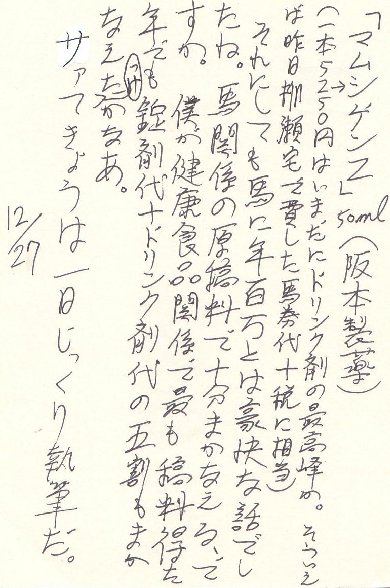 「マムシゲンZ」50ml(阪本製薬)
(一本5250円はいまだにドリンク剤の最高峰か。そういえ
ば昨日柳瀬宅で費した馬券代+税に相当)
それにしても馬に年百万とは豪快な話でし
たね。馬関係の原稿料で十分まかなえる、で
すか。 僕が健康食品関係で最も稿料得た
年でも錠剤代+ドリンク剤代の五割もまか
なえたかなあ。
サァてきょうは一日じっくり執筆だ。
12/27